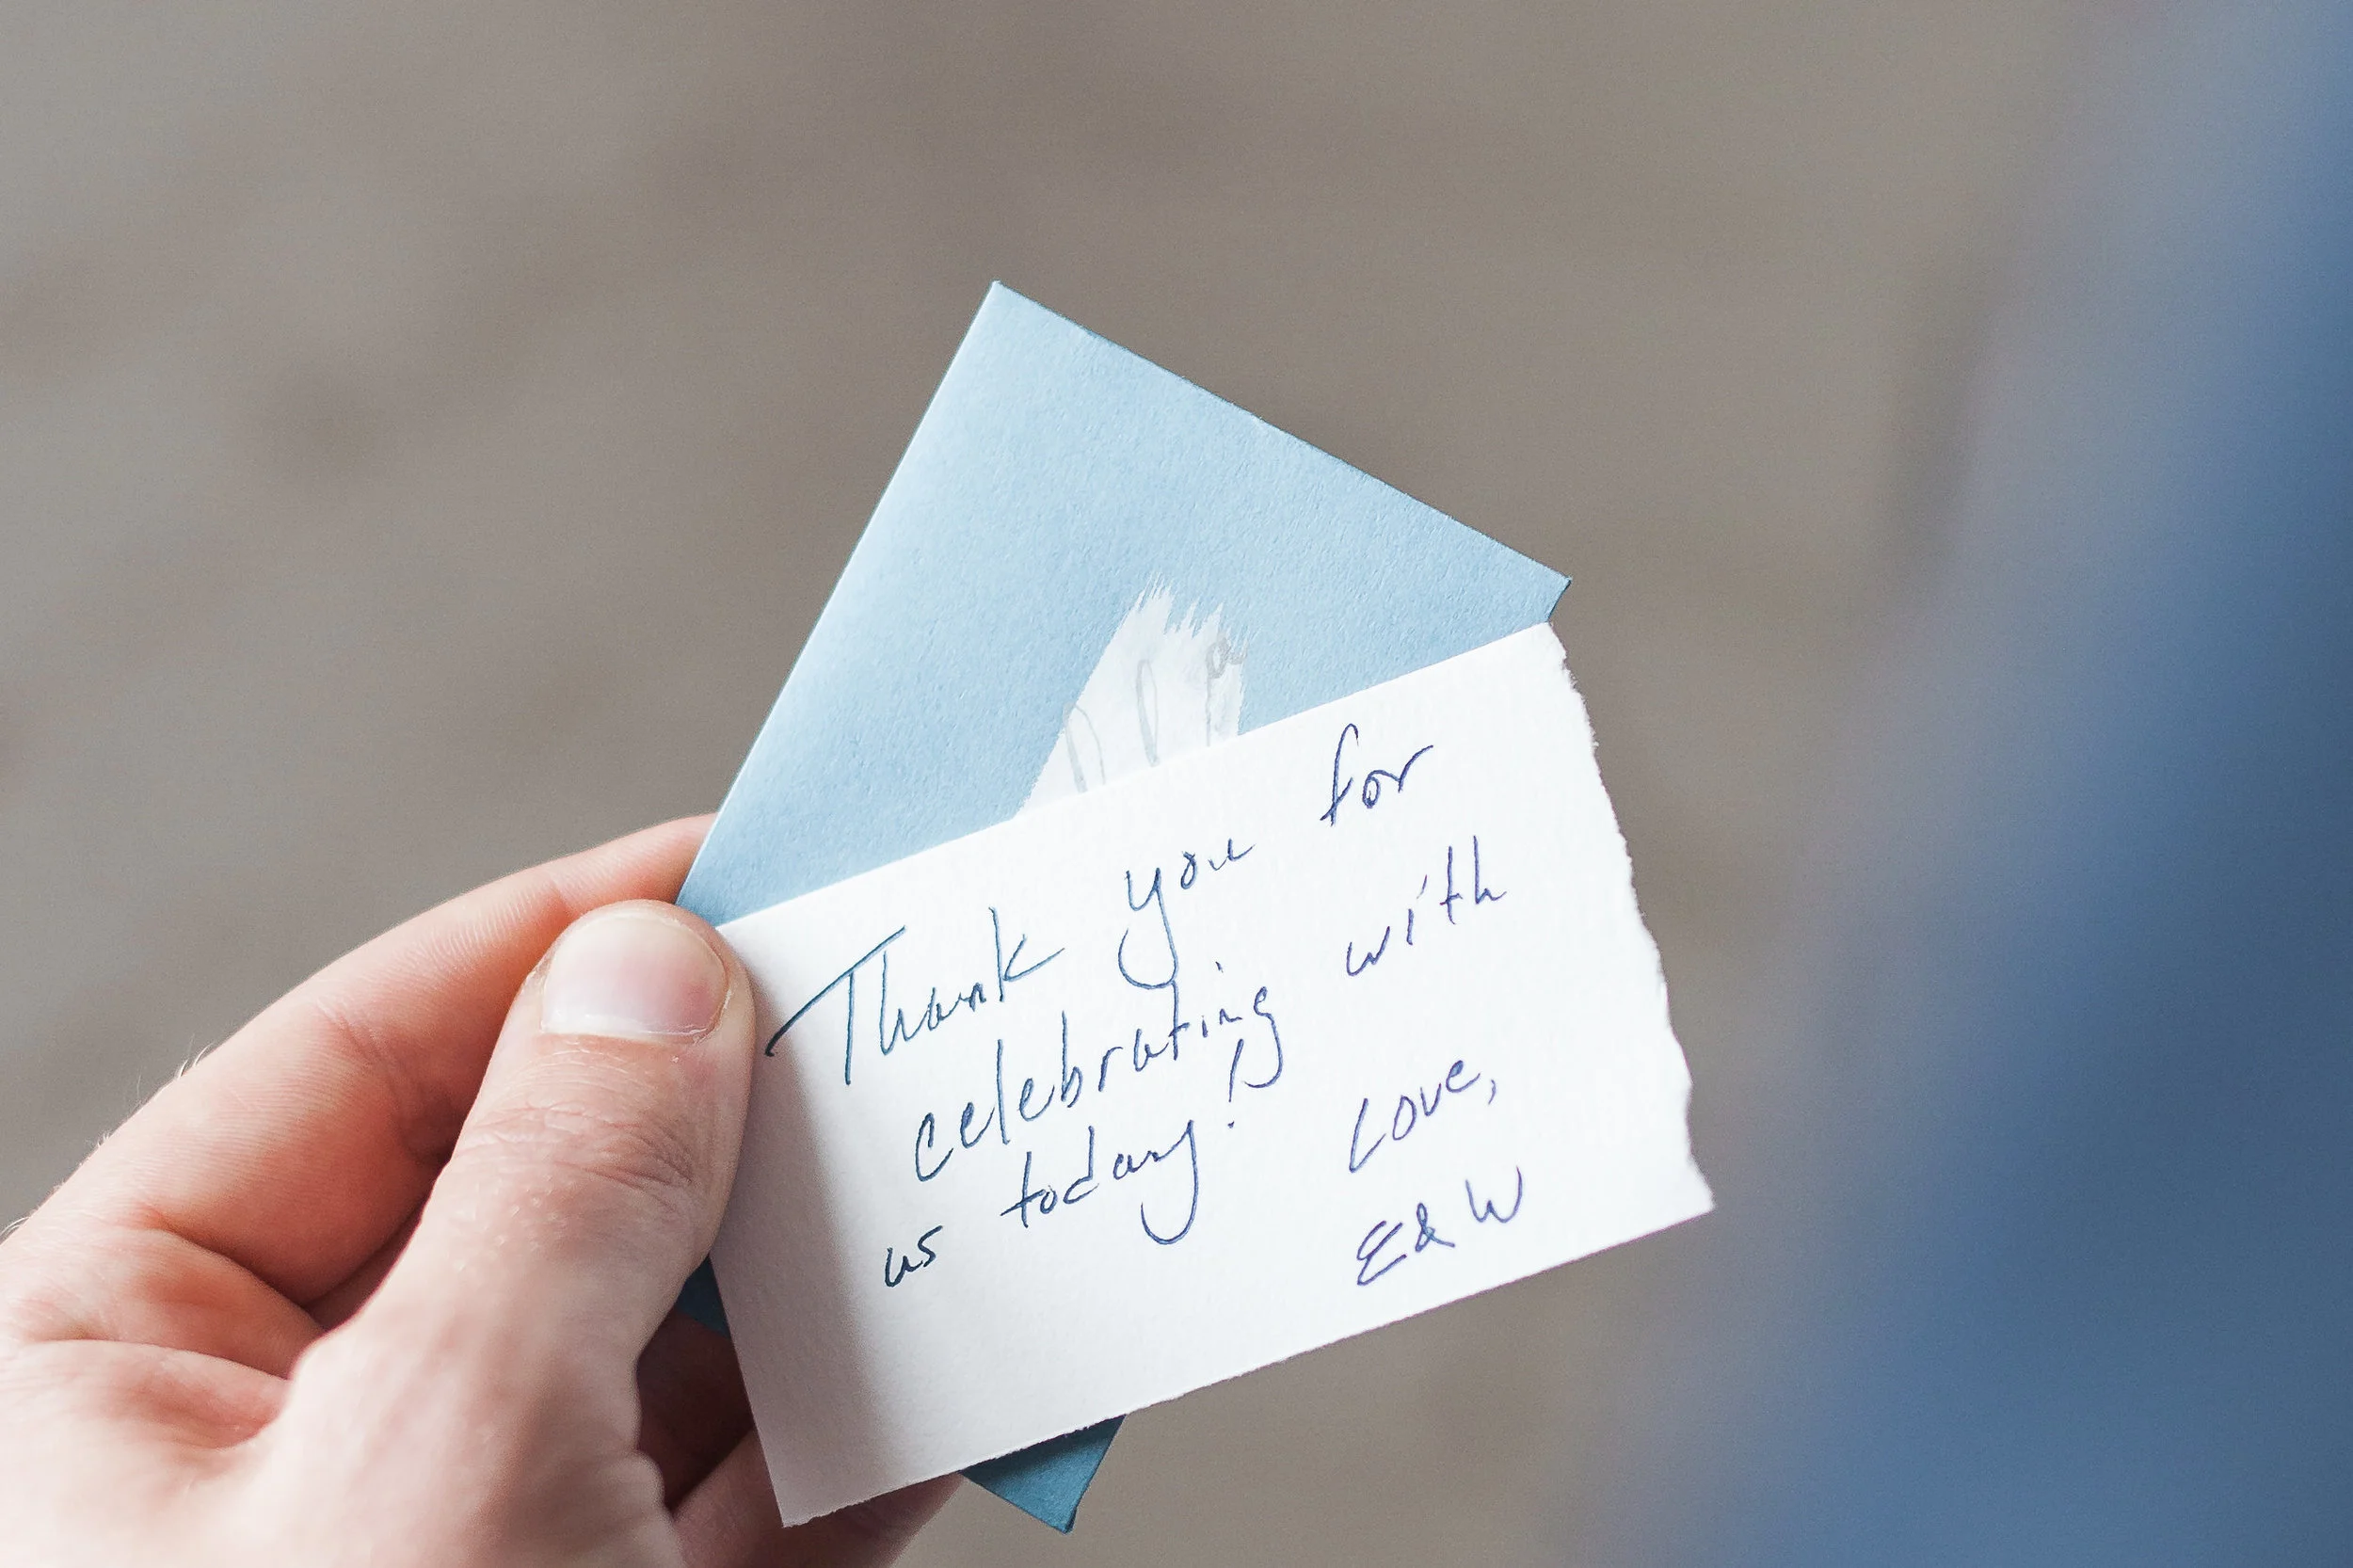 Thank you for
celebrating with
us today!
Love,
E & W